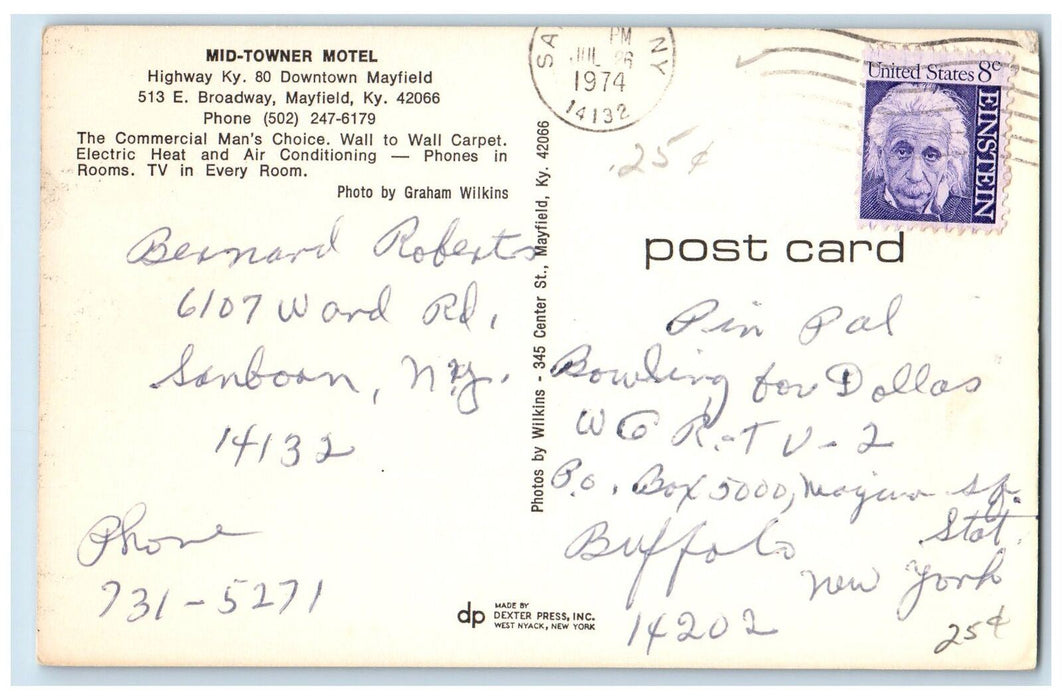 MID-TOWNER MOTEL
Highway Ky. 80 Downtown Mayfield
513 E. Broadway, Mayfield, Ky. 42066
Phone (502) 247-6179
The Commercial Man's Choice. Wall to Wall Carpet.
Electric Heat and Air Conditioning — Phones in
Rooms. TV in Every Room.
Photo by Graham Wilkins
Bernard Roberts
6107 Ward Rd,
Sanborn, N.Y.
14132
Phone
731-5271
Photos by Wilkins - 345 Center St., Mayfield, Ky. 42066
dp
MADE BY
DEXTER PRESS, INC.
WEST NYACK, NEW YORK
SA NY
PM
JUL 26
1974
14132
United States 8c
EINSTEIN
.25¢
post card
Pin Pal
Bowling for Dollas
WGR-TV-2
P.o. Box 5000, Sq.
Stat.
Buffalo
New York
14202
25¢